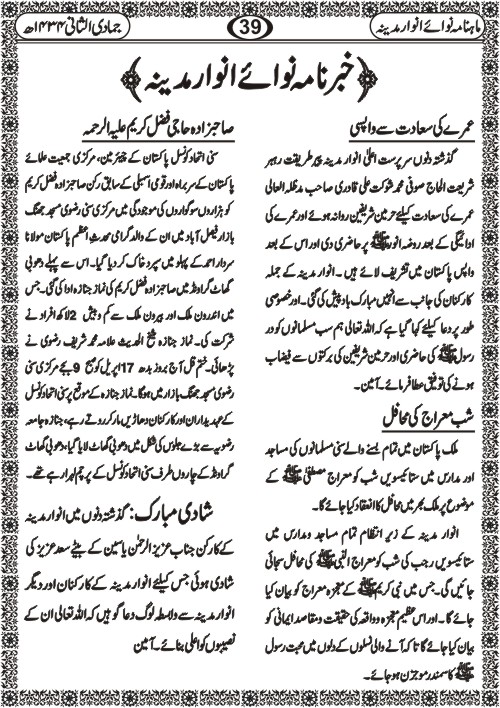 ماہنامہ نوائے انوار مدینہ
39
جمادی الثانی ۱۴۳۴ھ
خبر نامہ نوائے انوار مدینہ
عمرے کی سعادت سے واپسی
گذشتہ دنوں سرپرست اعلیٰ انوار مدینہ پیر طریقت رہبر
شریعت الحاج صوفی محمد شوکت علی قادری صاحب مدظلہ العالی
عمرے کی سعادت کیلئے حرمین شریفین روانہ ہوئے اور عمرے کی
ادائیگی کے بعد روضہ انور ﷺ پر حاضری دی اور اس کے بعد
واپس پاکستان میں تشریف لائے ہیں۔ انوار مدینہ کے جملہ
کارکنان کی جانب سے انہیں مبارک باد پیش کی گئی۔ اور خصوصی
طور پر دعا کیلئے کہا گیا ہے کہ اللہ تعالی ہم سب مسلمانوں کو در
رسول ﷺ کی حاضری اور حرمین شریفین کی برکتوں سے فیضاب
ہونے کی توفیق عطا فرمائے۔ آمین۔
شب معراج کی محافل
ملک پاکستان میں تمام بسنے والے سنی مسلمانوں کی مساجد
اور مدارس میں ستائیسویں شب کو معراج مصطفیٰ ﷺ کے
موضوع پر ملک بھر میں محافل کا انعقاد کیا جائے گا۔
انوار مدینہ کے زیر انتظام تمام مساجد و مدارس میں
ستائیسویں رجب کی شب کو معراج النبی ﷺ کی محافل سجائی
جائیں گی۔ جس میں نبی کریم ﷺ کے معجزہ معراج کو بیان کیا
جائے گا۔ اور اس عظیم معجزہ و واقعہ کی حقیقت و مقاصد ایمانی کو
بیان کیا جائے گا تاکہ آنے والی نسلوں کے دلوں میں محبت رسول
ﷺ کا سمندر موجزن ہو جائے۔
صاحبزادہ حاجی فضل کریم علیہ الرحمہ
سنی اتحاد کونسل پاکستان کے چیئرمین، مرکزی جمعیت علمائے
پاکستان کے سربراہ اور قومی اسمبلی کے سابق رکن صاحبزادہ فضل کریم
کو ہزاروں سوگواروں کی موجودگی میں مرکزی سنی رضوی مسجد جھنگ
بازار فیصل آباد میں ان کے والد گرامی محدث اعظم پاکستان مولانا
سردار احمد کے پہلو میں سپرد خاک کر دیا گیا۔ اس سے پہلے دھوبی
گھاٹ گراؤنڈ میں صاحبزادہ فضل کریم کی نماز جنازہ ادا کی گئی۔ جس
میں اندرون ملک اور بیرون ملک سے کم و بیش 2 لاکھ افراد نے
شرکت کی۔ نماز جنازہ شیخ الحدیث علامہ محمد شریف رضوی نے
پڑھائی۔ ختم قل آج بروز بدھ 17 اپریل کو صبح 9 بجے مرکزی سنی
رضوی مسجد جھنگ بازار میں ہوگا۔ نماز جنازہ کے موقع پر سنی اتحاد کونسل
کے عہدیداران اور کارکنان دھاڑیں مار کر روتے رہے، جنازہ جامعہ
رضویہ سے بڑے جلوس کی شکل میں دھوبی گھاٹ لایا گیا، دھوبی گھاٹ
گراؤنڈ کے چاروں طرف سنی اتحاد کونسل کے پرچم لہرا رہے تھے۔
شادی مبارک: گذشتہ دنوں میں انوار مدینہ
کے کارکن جناب عزیز الرحمٰن یاسین کے بیٹے سعد عزیز کی
شادی ہوئی جس کیلئے انوار مدینہ کے کارکنان اور دیگر
انوار مدینہ سے وابستہ لوگ دعا گو ہیں کہ اللہ تعالی ان کے
نصیبوں کو اعلیٰ بنائے۔ آمین